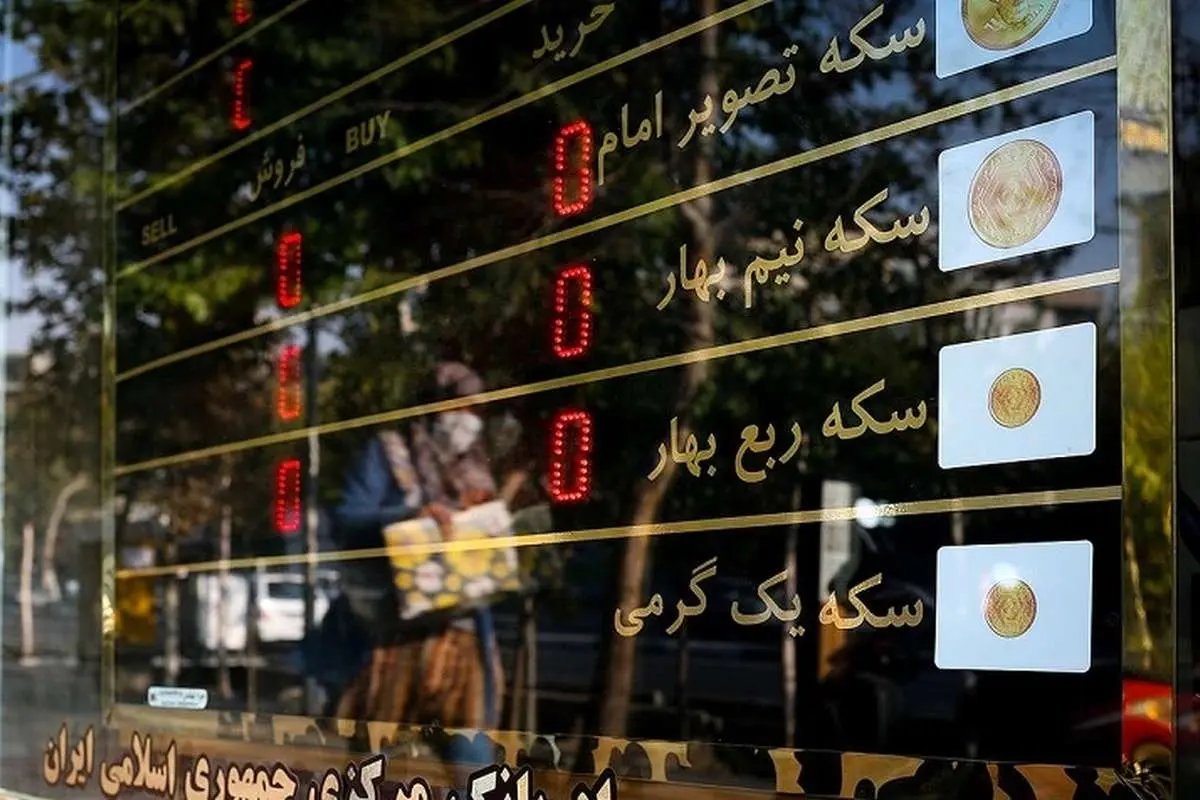 خرید
BUY
فروش
SELL
سکه تصویر امام
0
0
سکه نیم بهار
0
0
سکه ربع بهار
0
0
سکه یک گرمی
بانک مرکزی جمهوری اسلامی ایران